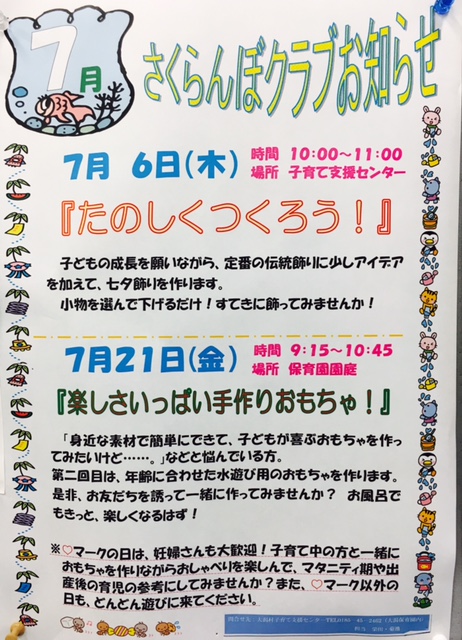 7月
さくらんぼクラブお知らせ
7月 6日(木)
時間 10:00～11:00
場所 子育て支援センター
『たのしくつくろう!』
子どもの成長を願いながら、定番の伝統飾りに少しアイデア
を加えて、七夕飾りを作ります。
小物を選んで下げるだけ!すてきに飾ってみませんか!
7月21日(金)
時間 9:15～10:45
場所 保育園園庭
『楽しさいっぱい手作りおもちゃ!』
「身近な素材で簡単にできて、子どもが喜ぶおもちゃを作っ
てみたいけど……。」などと悩んでいる方。
第二回目は、年齢に合わせた水遊び用のおもちゃを作ります。
是非、お友だちを誘って一緒に作ってみませんか? お風呂で
もきっと、楽しくなるはず!
※♡マークの日は、妊婦さんも大歓迎!子育て中の方と一緒に
おもちゃを作りながらおしゃべりを楽しんで、マタニティ期や出
産後の育児の参考にしてみませんか?また、♡マーク以外の
日も、どんどん遊びに来てください。